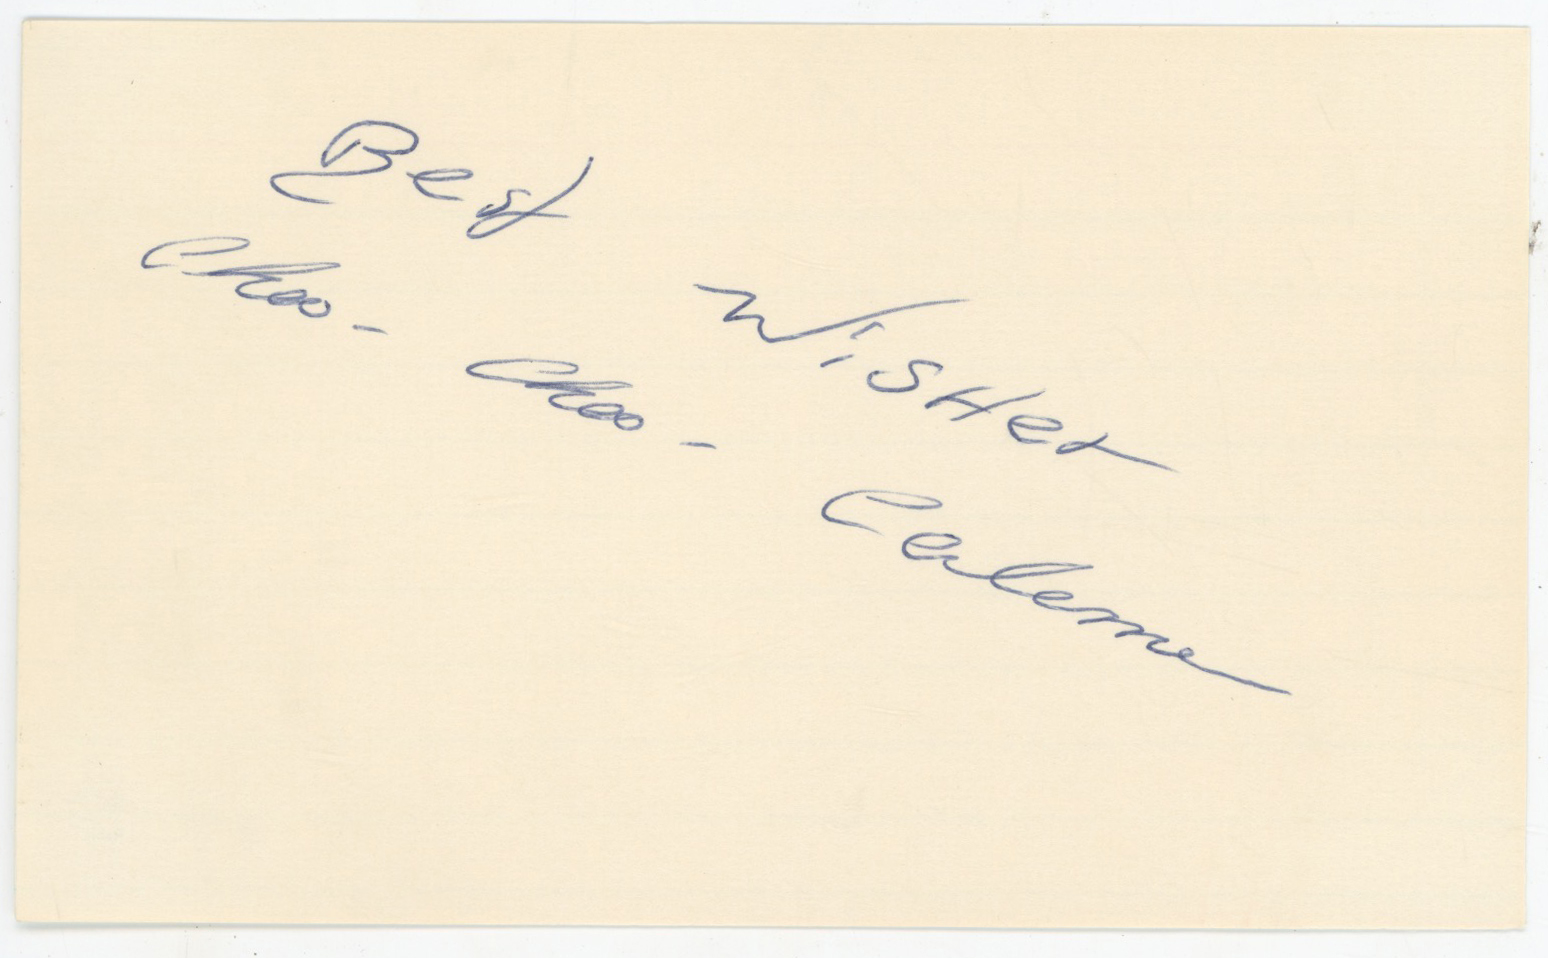 Best Wishes
Choo-Choo-Coleman